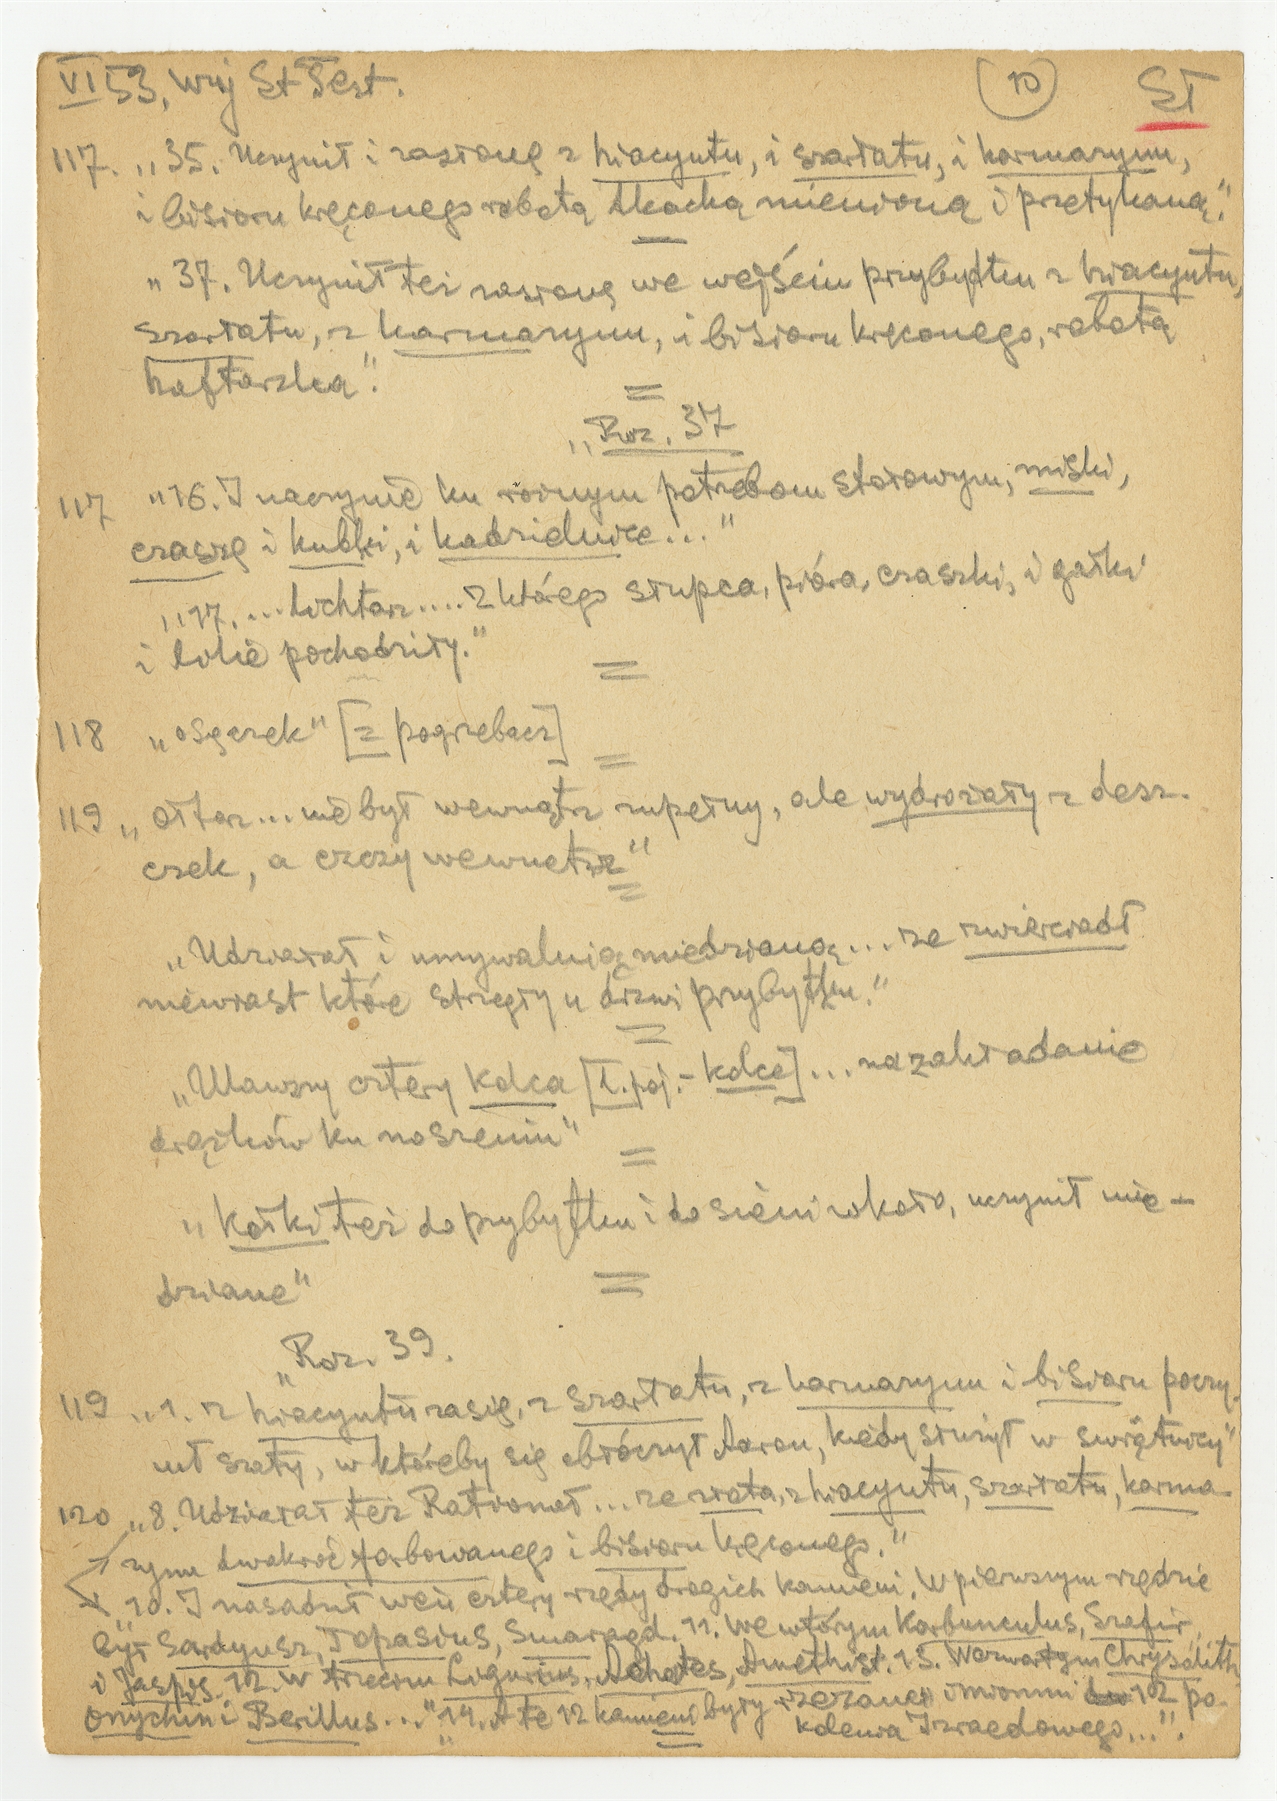 VI 53, Wuj St Test. (10) ST
117. „35. Uczynił i zasłonę z hiacyntu, i szarłatu, i karmazynu,
i bisioru kręconego robotą tkacką mienioną i przetykaną."
„37. Uczynił też zasłonę we wejściu przybytku z hiacyntu,
szarłatu, z karmazynu, i bisioru kręconego, robotą
haftarską".
„Roz. 37
117 „16. I naczynie ku różnym potrzebom stołowym, miski,
czaszę i kubki, i kadzielnice..."
„17. ... lichtarz .... z którego słupca, pióra, czaszki, i gałki
i lilie pochodziły."
118 „osęczek" [= pogrzebacz]
119 „Ołtarz... nie był wewnątrz zupełny, ale wydrożały z desz-
czek, a czczy wewnętrz"
„Udziałał i umywalnią miedzianą... ze zwierciadł
niewiast które strzegły u drzwi przybytku."
„Ulawszy cztery kolca [l.poj. - kolce]... na zakładanie
drążków ku noszeniu"
„Kołki też do przybytku i do sieni wkoło, uczynił mie-
dziane"
„Roz. 39.
119 „1. z hiacyntu zasię, z szarłatu, z karmazynu i bisioru poczy-
nił szaty, w któreby się obłóczył Aaron, kiedy służył w świątnicy"
120 „8. Udziałał też Rationał... ze złota, z hiacyntu, szarłatu, karma-
zynu dwakroć farbowanego i bisioru kręconego."
„10. I nasadził weń cztery rzędy drogich kamieni. W pierwszym rzędzie
był Sardyusz, Topasius, Smaragd. 11. We wtórym Karbunculus, Szafir,
i Jaspis. 12. W trzecim Ligurius, Achates, Amethist. 13. W czwartym Chrysolith
Onychin i Berillus..." „14. A te 12 kamieni były rzezane imionmi 12 po-
kolenia Izraelowego,...".